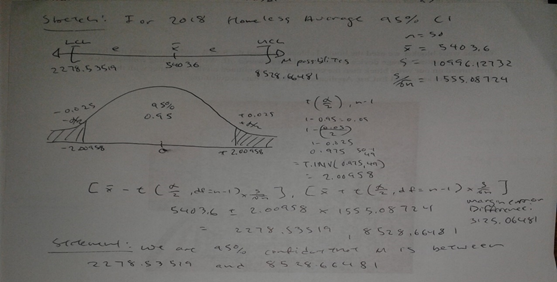 Sketch: For 2018 Homeless Average 95% CI
n=50
LCL e x̄ e UCL
x̄ = 5403.6
2278.53519 5403.6 M possibilities
8528.66481
s = 10996.12732
s/√n = 1555.08724
-0.025
-α/2
95%
0.95
+0.025
+α/2
-2.00958 0 +2.00958
t(α/2), n-1
1-0.95=0.05
1-(0.05/2)
1-0.025
0.975
=T.INV(0.975,49)
= 2.00958
[x̄ - t(α/2, df=n-1) × s/√n], [x̄ + t(α/2, df=n-1) × s/√n]
5403.6 ± 2.00958 × 1555.08724
margin error
Difference:
3125.06481
= 2278.53519, 8528.66481
Statement: We are 95% confident that M is between
2278.53519 and 8528.66481